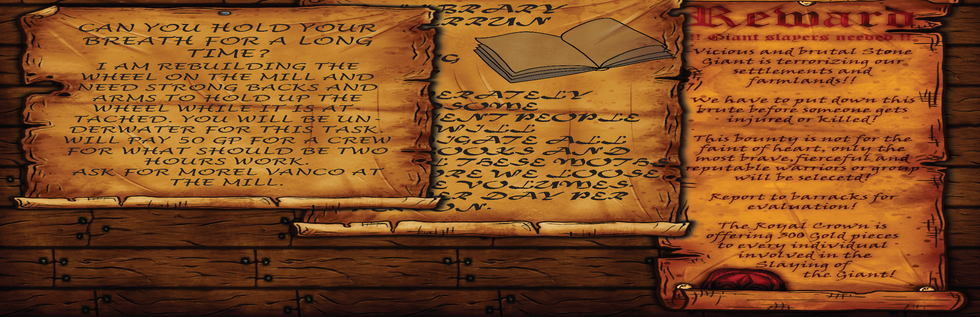 CAN YOU HOLD YOUR
BREATH FOR A LONG
TIME?
I AM REBUILDING THE
WHEEL ON THE MILL AND
NEED STRONG BACKS AND
ARMS TO HOLD UP THE
WHEEL WHILE IT IS AT-
TACHED. YOU WILL BE UN-
DERWATER FOR THIS TASK.
WILL PAY 50 GP FOR A CREW
FOR WHAT SHOULD BE TWO
HOURS WORK.
ASK FOR MOREL VANCO AT
THE MILL.
BRARY
RRUN
G
ERATELY
SOME
ENT PEOPLE
WILL
GATE ALL
OUSE AND
THESE MOTH
REW LOOSE
E VOLUMES.
R DAY PER
ON.
Reward
!! Giant slayers needed !!
Vicious and brutal Stone
Giant is terrorizing our
settlements and
farmlands!
We have to put down this
brute before someone gets
injured or killed!
This bounty is not for the
faint of heart, only the
most brave,fierceful and
reputable warriors or group
will be selecetd!
Report to barracks for
evaluation!
The Royal Crown is
offering 300 Gold pieces
to every individual
involved in the
Slaying of
the Giant!